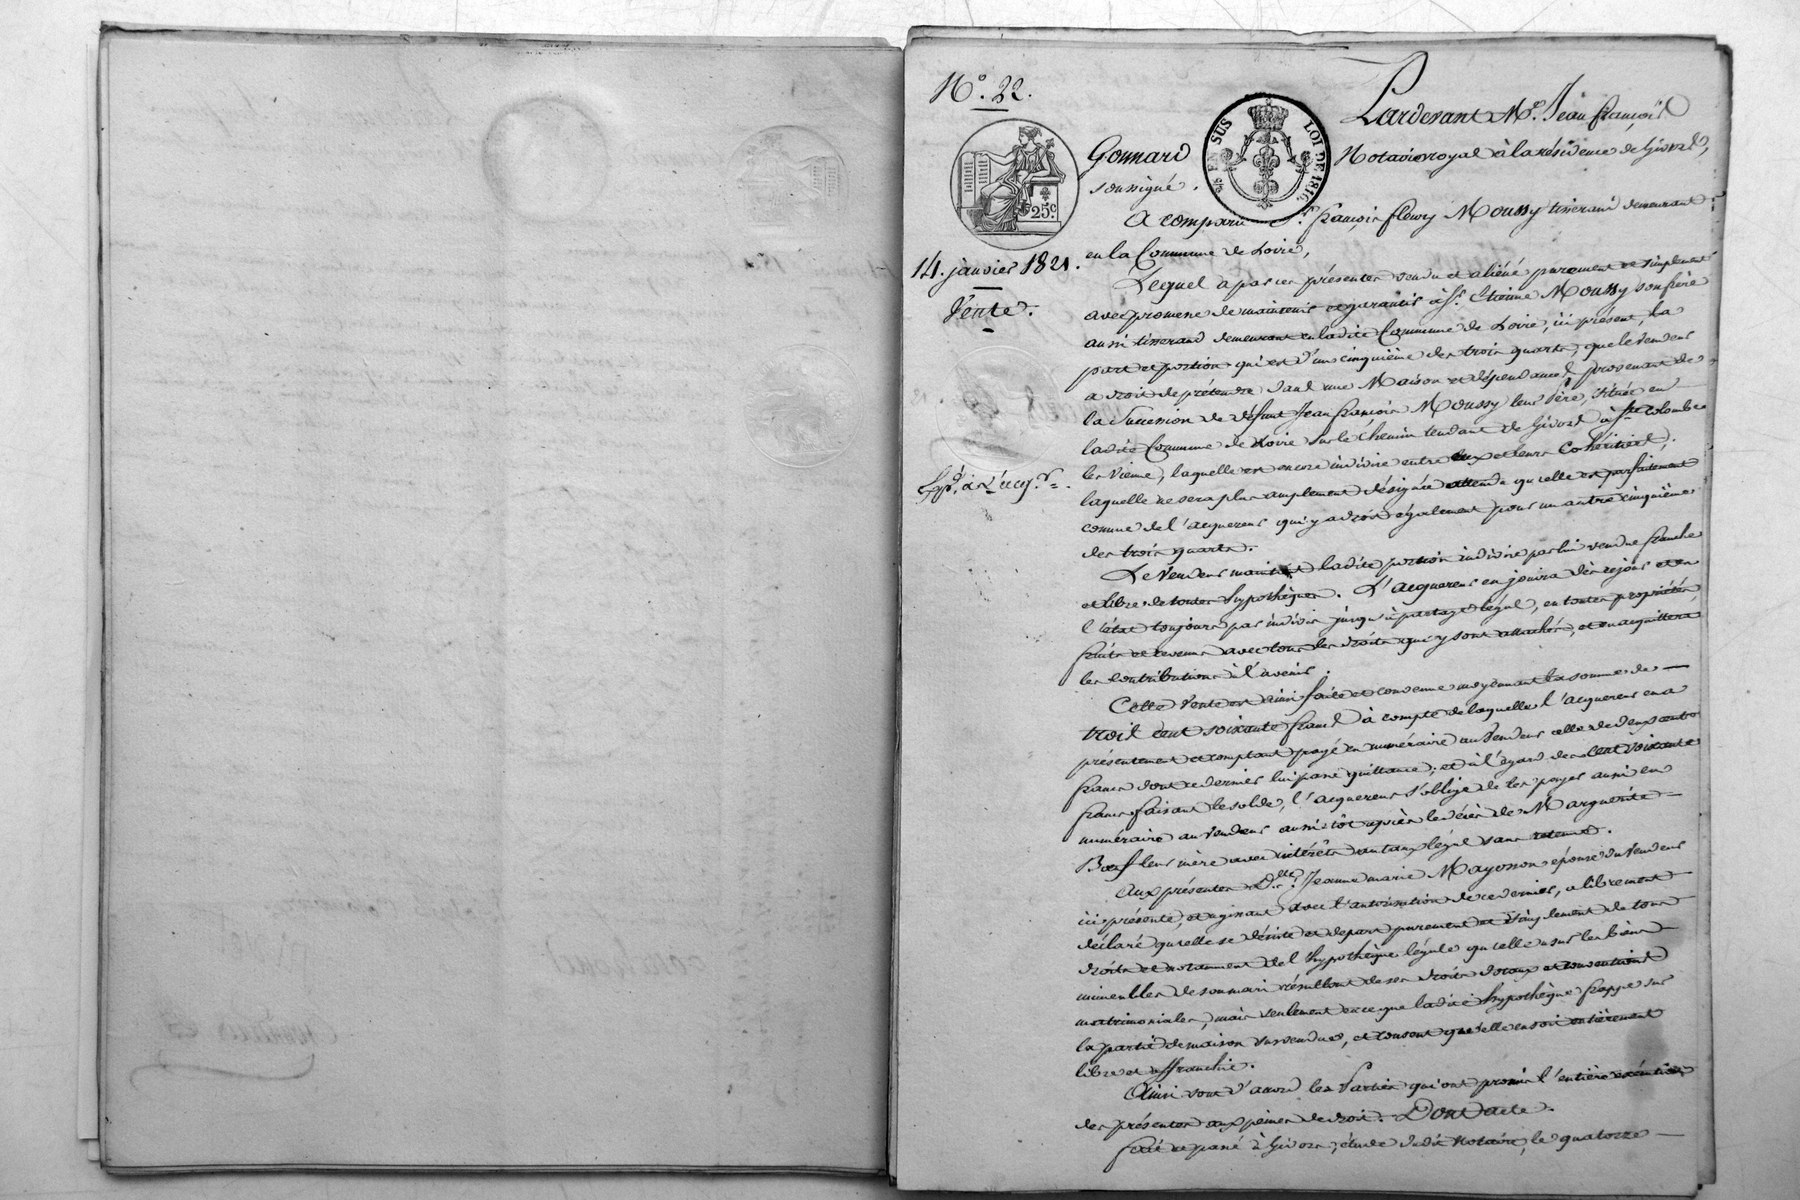 N.° 22.
Pardevant M.e Jean françois
Gonnard Notaire royal à la résidence de Givors,
soussigné.
EN SUS LOI DE 1816.
25.c
A comparu S.r françois fleury Moussy tisserand demeurant
en la Commune de Loire,
14. janvier 1821.
Vente.
Lequel a par ces présentes vendu et aliéné purement et simplement
avec promesse de maintenir et garantir à S.r Etienne Moussy son frère
aussi tisserand demeurant en ladite Commune de Loire, ici présent, La
part et portion qui est d'un cinquième des trois quarts, que le vendeur
a droit de prétendre dans une Maison et dépendances provenant de
la Succession de défunt Jean françois Moussy leur Père, située en
ladite Commune de Loire sur le Chemin tendant de Givors à Ste Colombe
les Vienne, laquelle est encore indivise entre eux et leurs Cohéritiers;
laquelle ne sera plus amplement désignée attendu qu'elle est parfaitement
connue de l'acquereur qui y a droit également pour un autre cinquième
des trois quarts.
Le Vendeur maintient ladite portion indivise par lui vendue franche
et libre de toutes hypothèques. L'acquereur en jouira dès ce jour et en
l'état toujours par indivis jusqu'à partage légal, en toutes propriétés
fruits et revenus avec tous les droits qui y sont attachés, et en acquittera
les contributions à l'avenir.
Cette Vente est ainsi faite et convenue moyennant la somme de
trois cent soixante francs à compte de laquelle l'acquereur en a
présentement et comptant payé en numéraire au Vendeur celle de deux cents
francs dont ce dernier lui passe quittance; et à l'égard des cent soixante
francs faisant le solde, l'acquereur s'oblige de les payer aussi en
numéraire au vendeur aussitôt après le décès de Marguerite
Bœuf leur mère avec intérêts au taux légal sans retenue.
Aux présentes D.lle Jeanne marie Mayosson épouse du Vendeur
ici présente, et agissant avec l'autorisation de ce dernier, a librement
déclaré qu'elle se désiste et départ purement et simplement de tous
droits et notamment de l'hypothèque légale qu'elle a sur les biens
immeubles de son mari résultant de ses droits dotaux et conventions
matrimoniales, mais seulement en ce que ladite hypothèque frappe sur
la partie de maison susvendue, et consent qu'elle en soit entièrement
libre et affranchie.
Ainsi sont d'accord les Parties qui ont promis l'entière exécution
des présentes aux peines de droit. Dont acte.
fait et passé à Givors, étude dudit notaire, le quatorze